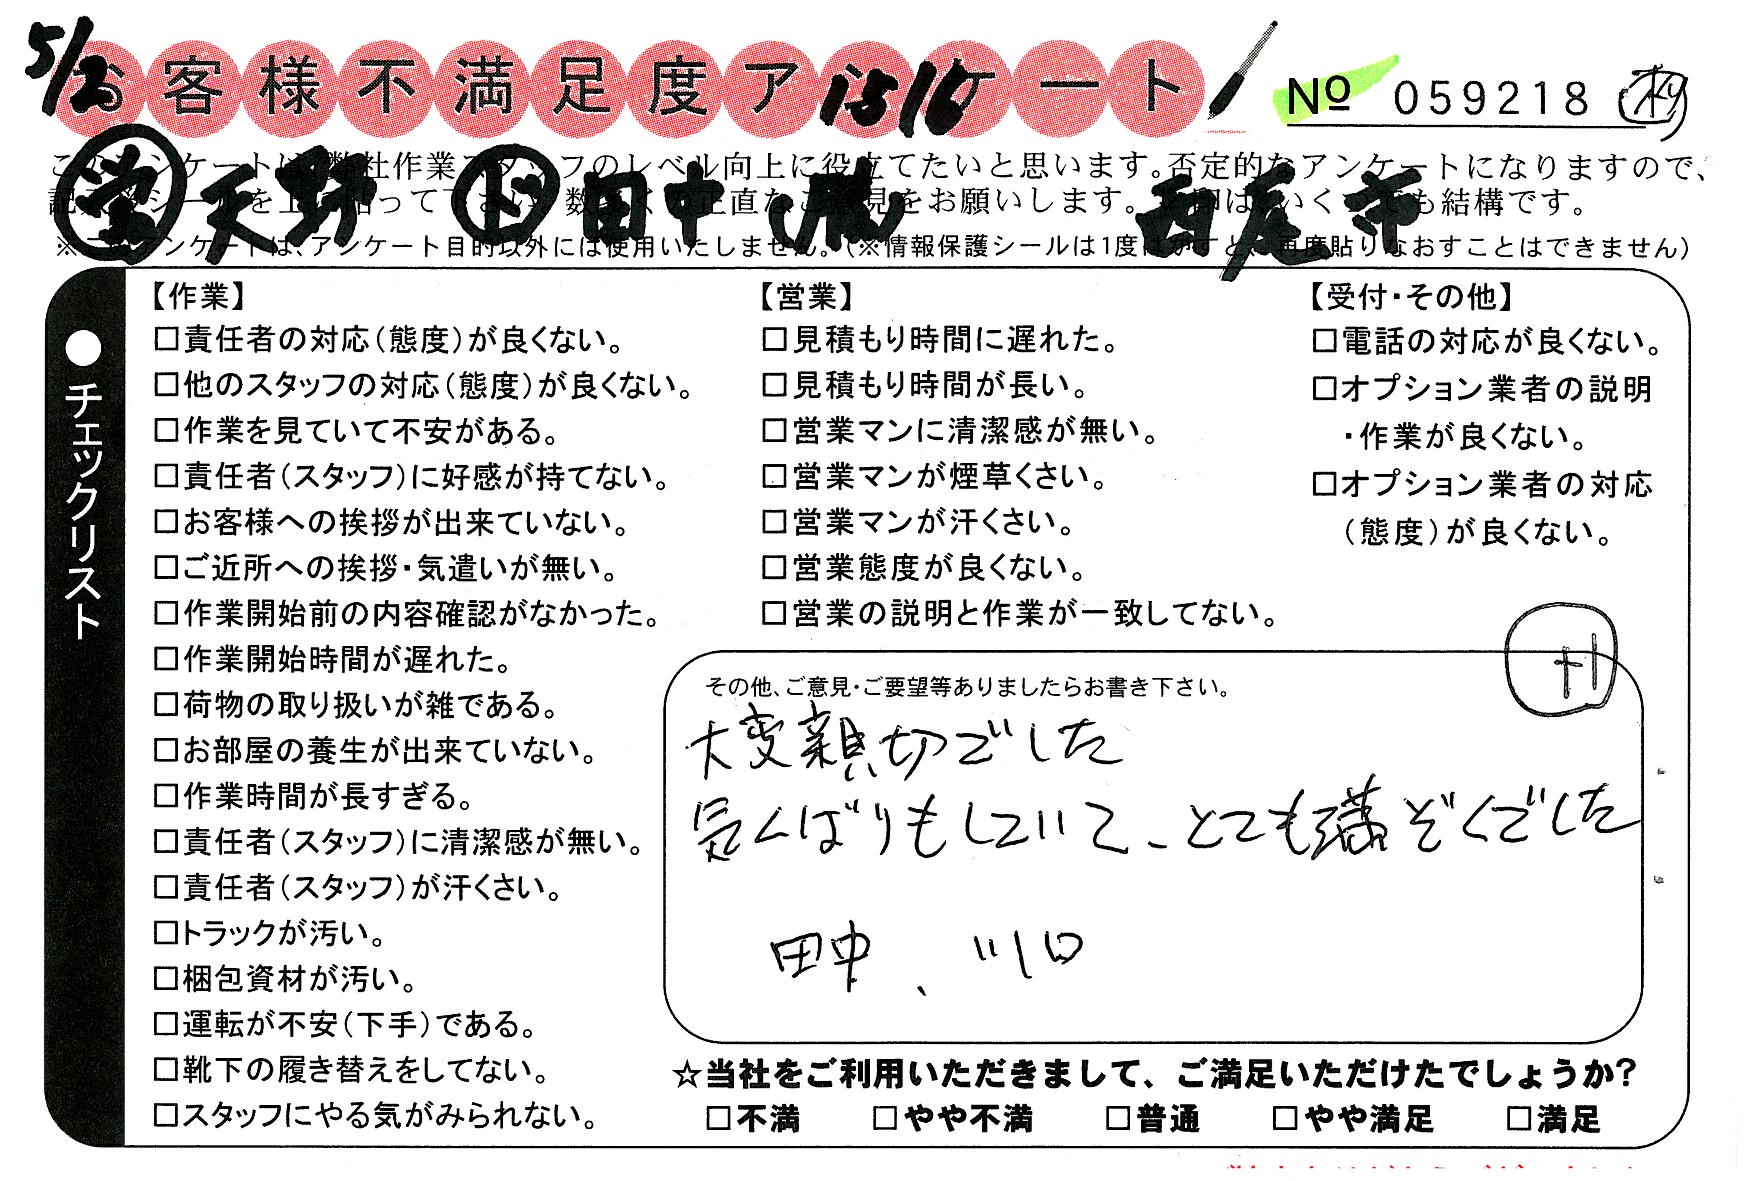 5/2
お客様不満足度アンケート
1516
No 059218
このアンケートは、弊社作業スタッフのレベル向上に役立てたいと思います。否定的なアンケートになりますので、
シールを上に貼って下さい。数多くの正直なご意見をお願いします。いくつでも結構です。
※このアンケートは、アンケート目的以外には使用いたしません。(※情報保護シールは1度はがすと、再度貼りなおすことはできません)
営 天野 ド 田中 西尾市
●チェックリスト
【作業】
□責任者の対応(態度)が良くない。
□他のスタッフの対応(態度)が良くない。
□作業を見ていて不安がある。
□責任者(スタッフ)に好感が持てない。
□お客様への挨拶が出来ていない。
□ご近所への挨拶・気遣いが無い。
□作業開始前の内容確認がなかった。
□作業開始時間が遅れた。
□荷物の取り扱いが雑である。
□お部屋の養生が出来ていない。
□作業時間が長すぎる。
□責任者(スタッフ)に清潔感が無い。
□責任者(スタッフ)が汗くさい。
□トラックが汚い。
□梱包資材が汚い。
□運転が不安(下手)である。
□靴下の履き替えをしてない。
□スタッフにやる気がみられない。
【営業】
□見積もり時間に遅れた。
□見積もり時間が長い。
□営業マンに清潔感が無い。
□営業マンが煙草くさい。
□営業マンが汗くさい。
□営業態度が良くない。
□営業の説明と作業が一致してない。
【受付・その他】
□電話の対応が良くない。
□オプション業者の説明
・作業が良くない。
□オプション業者の対応
(態度)が良くない。
+1
その他、ご意見・ご要望等ありましたらお書き下さい。
大変親切でした
気くばりもしていて、とても満ぞくでした
田中、川口
☆当社をご利用いただきまして、ご満足いただけたでしょうか?
□不満 □やや不満 □普通 □やや満足 □満足